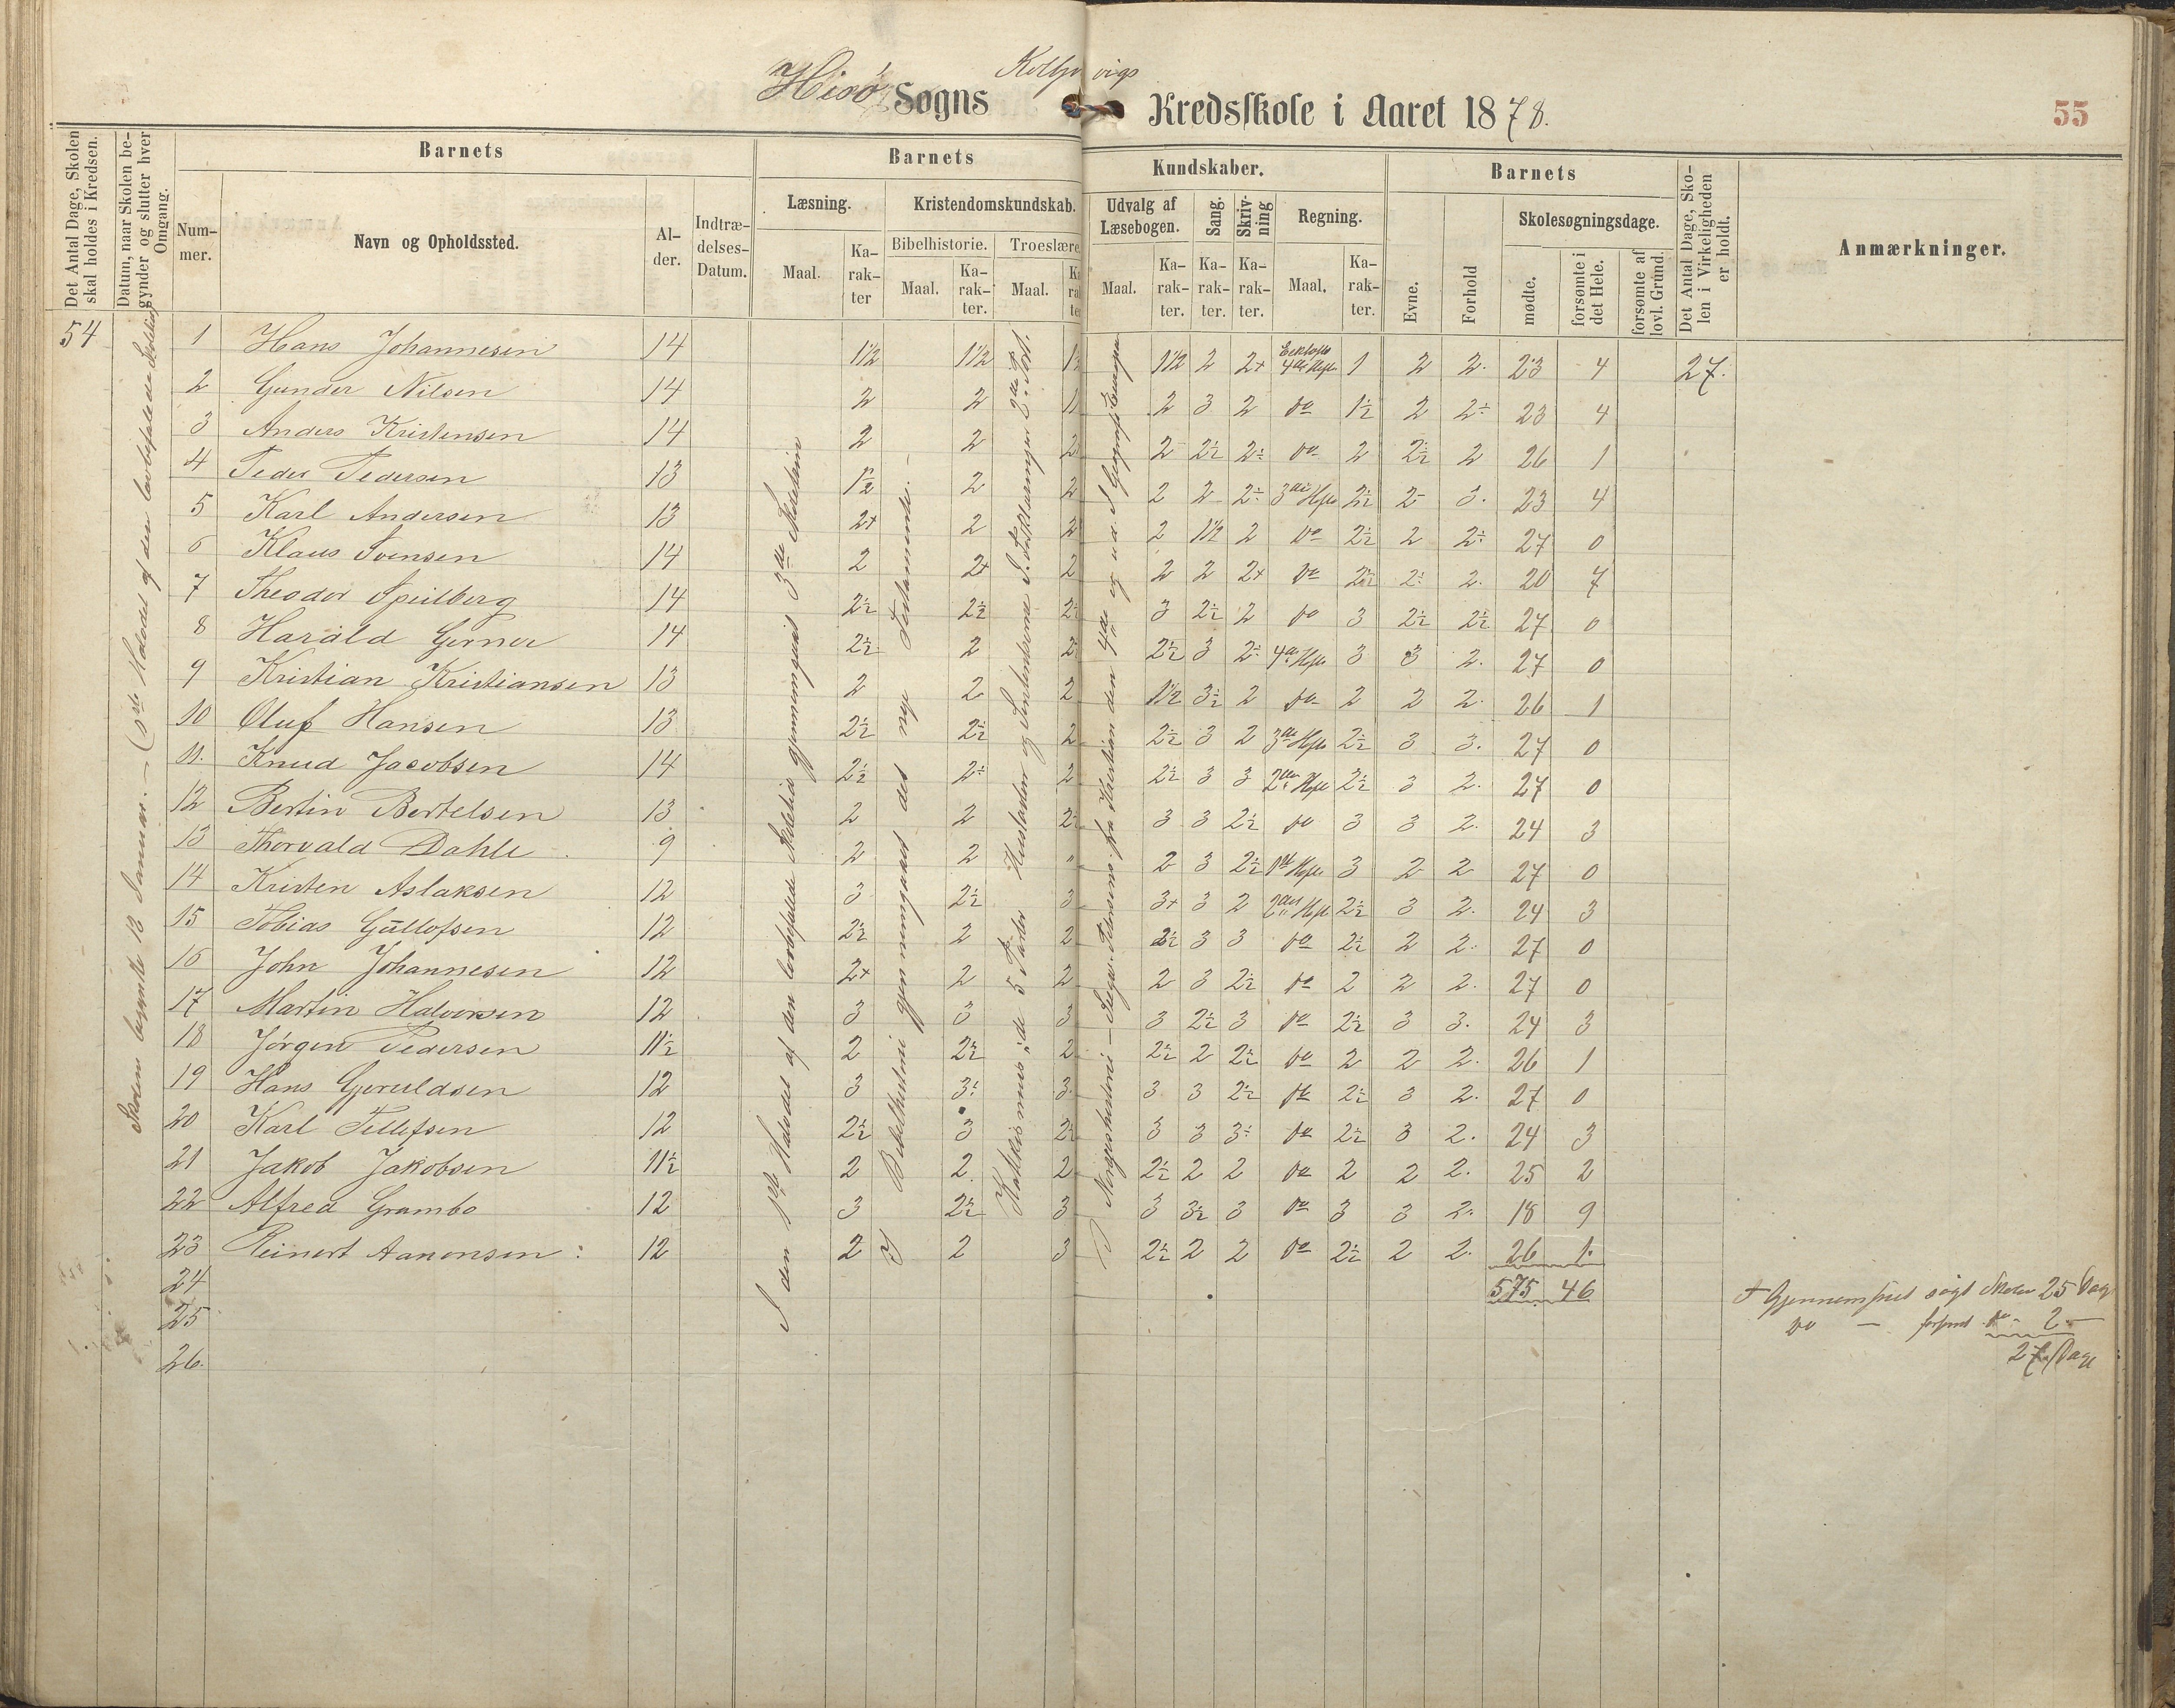 Hisø Sogns Kolbjørnsvigs Kredsskole i Aaret 1878.
55
Det Antal Dage, Skolen skal holdes i Kredsen.
Datum, naar Skolen begynder og slutter hver Omgang.
Barnets
Nummer.
Navn og Opholdssted.
Alder.
Indtrædelses-Datum.
Barnets Kundskaber.
Læsning.
Maal.
Karakter
Kristendomskundskab.
Bibelhistorie.
Maal.
Karakter.
Troeslære
Maal.
Udvalg af Læsebogen.
Maal.
Karakter.
Sang.
Karakter.
Skrivning
Karakter.
Regning.
Maal.
Karakter.
Barnets
Evne.
Forhold
Skolesøgningsdage.
mødte.
forsømte i det Hele.
forsømte af lovl. Grund.
Det Antal Dage, Skolen i Virkeligheden er holdt.
Anmærkninger.
54
Skolen begyndte 13 Januar. – (1ste Halvdel af den lovbefalede Skoletid)
I den 1ste Halvdel af den lovbefalede Skoletid gjennemgaaet 3die
I Bibelhistorie gjennemgaaet det nye Testamente. –
1 Hans Johannesen 14 1½ 1½ 1½ 2 2+ 4de Hefte 1 2 2. 23 4 27.
2 Gunder Nilsen 14 2 2 2 3 2 do 1½ 2 2÷ 23 4
3 Anders Kristensen 14 2 2 2 2½ 2÷ do 2 2½ 2 26 1
4 Peder Pedersen 13 1½ 2 2 2 2÷ 3die Hefte 2½ 2 3. 23 4
5 Karl Andersen 13 2+ 2 2 2 1½ 2 do 2½ 2 2÷ 27 0
6 Klaus Svensen 14 2 2+ 2 2 2 2+ do 2½ 2÷ 2. 20 7
7 Theodor Speilberg 14 2½ 2½ 3 2½ 2 do 3 2½ 2½ 27 0
8 Harald Gerner 14 2½ 2 2½ 3 2÷ 4de Hefte 3 3 2. 27 0
9 Kristian Kristiansen 13 2 2 2 1½ 3½ 2 do 2 2 2. 26 1
10 Oluf Hansen 13 2½ 2½ 2 2½ 3 2 3die Hefte 2½ 3 3. 27 0
11. Knud Jacobsen 14 2½ 2÷ 2 2½ 3 3 2den Hefte 2½ 3 2. 27 0
12 Bertin Bertelsen 13 2 2 3 3 2½ do 3 3 2. 24 3
13 Thorvald Dahle 9 2 2 " 2 3 2½ 1ste Hefte 3 2 2 27 0
14 Kristen Aslaksen 12 3 2½ 3 3+ 3 2 2det Hefte 2½ 3 2. 24 3
15 Tobias Gullofsen 12 2½ 2 2 2½ 3 3 do 2½ 2 2. 27 0
16 John Johannesen 12 2+ 2 2 2 3 2½ do 2 2 2. 27 0
17 Martin Halvorsen 12 3 3 3 3 2½ 3 do 2½ 3 3. 24 3
18 Jørgen Pedersen 11½ 2 2½ 2 2½ 2 2½ do 2 2 2. 26 1
19 Hans Gjeruldsen 12 3 3÷ 3 3 3 2½ do 2½ 3 2. 27 0
20 Karl Tellefsen 12 2½ 3 3 3 3÷ do 2½ 3 2. 24 3
21 Jakob Jakobsen 11½ 2 2. 2 2½ 2 2 do 2 2 2. 25 2
22 Alfred Grambo 12 3 2½ 3 3 3½ 3 do 3 3 2÷ 18 9
23 Reinert Aanonsen: 12 2 2 3 2½ 2 2 do 2½ 2 2. 26 1.
24 575. 46
25
26.
Gjennemsnit søgt Skolen 25 Dage
do – forsømt do – 2 –
27 Dage